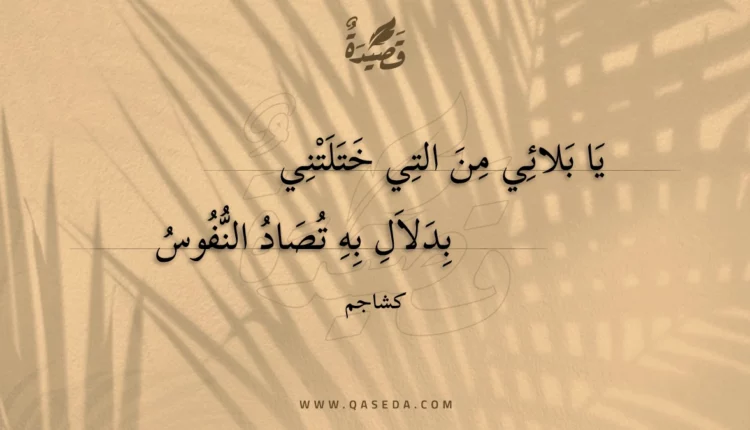 قَصِيْدَةٌ
يَا بَلائِي مِنَ التِي خَتَلَتْنِي
بِدَلاَلِ بِهِ تُصَادُ النُّفُوسُ
كشاجم
WWW.QASEDA.COM